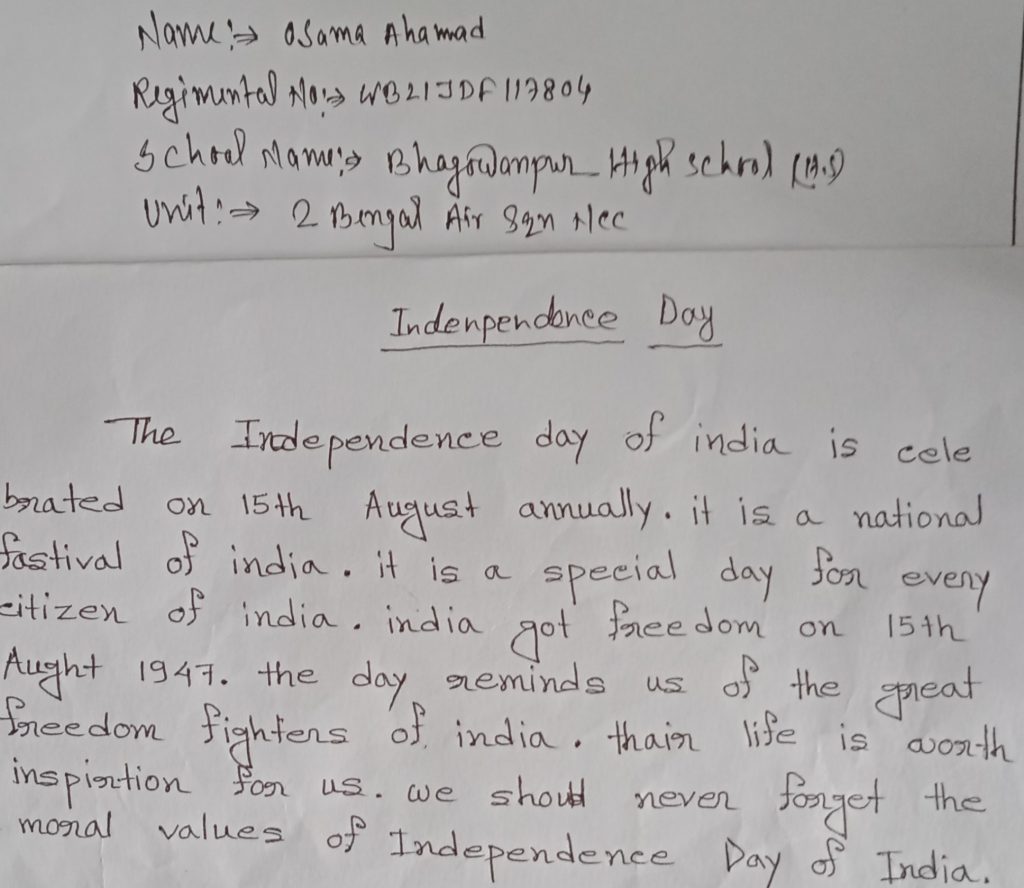 Name:→ Osama Ahamad
Regimental No:→ WB21JDF117804
School Name:→ Bhagowanpur High school (H.S)
Unit:⇒ 2 Bengal Air Sqn Ncc
Indenpendence Day
The Independence day of india is cele
brated on 15th August annually. it is a national
fastival of india. it is a special day for every
citizen of india. india got freedom on 15th
Aught 1947. the day reminds us of the great
freedom fighters of india. thair life is worth
inspirtion for us. we should never forget the
moral values of Independence Day of India.